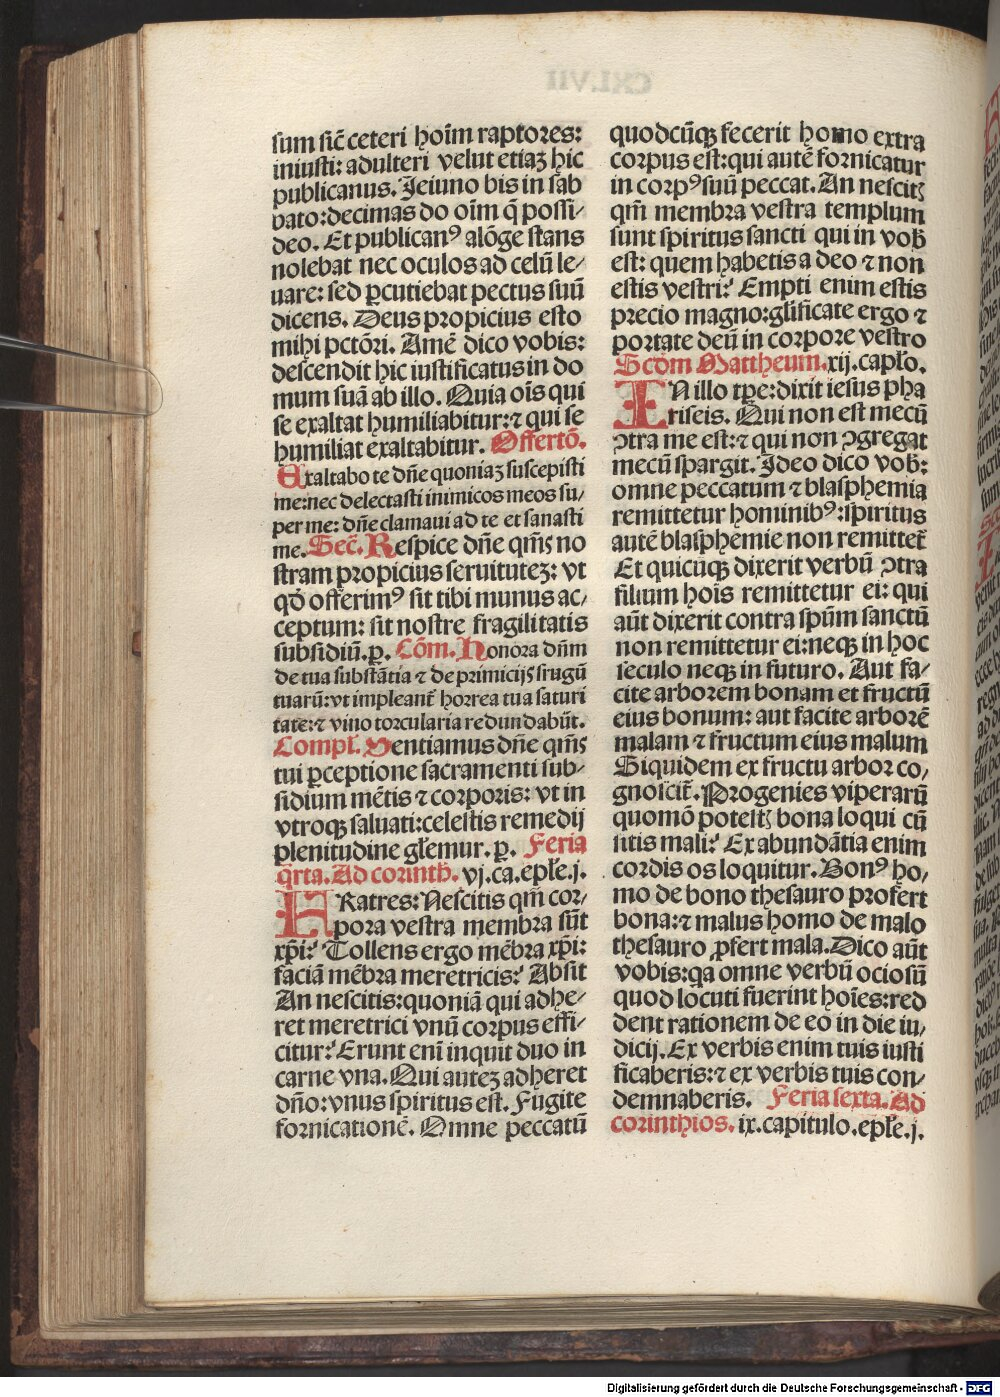 sum sic̄ ceteri hoīm raptores:
iniusti: adulteri velut etiaꝫ hic
publicanus. Jeiuno bis in sab
bato: decimas do oīm q̄ possi-
deo. Et publicanꝰ alōge stans
nolebat nec oculos ad celū le-
uare: sed ꝑcutiebat pectus suū
dicens. Deus propicius esto
mihi pctōri. Amē dico vobis:
descendit hic iustificatus in do
mum suā ab illo. Quia oīs qui
se exaltat humiliabitur: ⁊ qui se
humiliat exaltabitur. Offertō.
Exaltabo te dn̄e quoniaꝫ suscepisti
me: nec delectasti inimicos meos su-
per me: dn̄e clamaui ad te et sanasti
me. Sec̄. Respice dn̄e qm̄ꝭ no
stram propicius seruituteꝫ: vt
qd̄ offerimꝰ sit tibi munus ac-
ceptum: sit nostre fragilitatis
subsidiū. ꝑ. Cōm. Honora dn̄m
de tua substātia ⁊ de primicijꝭ frugū
tuarū: vt impleant̄ horrea tua saturi
tate: ⁊ vino torcularia redundabūt.
Compl̄. Sentiamus dn̄e qm̄ꝭ
tui ꝑceptione sacramenti sub-
sidium mētis ⁊ corporis: vt in
vtroqꝫ saluati: celestis remedij
plenitudine gl̄emur. ꝑ. Feria
q̄rta. Ad corinth̄. vj. ca. epl̄e. j.
FRatres: Nescitis qm̄ cor-
pora vestra membra sūt
xp̄i? Tollens ergo mēbra xp̄i:
faciā mēbra meretricis? Absit
An nescitis: quoniā qui adhe-
ret meretrici vnū corpus effi-
citur? Erunt enī inquit duo in
carne vna. Qui auteꝫ adheret
dn̄o: vnus spiritus est. Fugite
fornicationē. Omne peccatū
quodcūqꝫ fecerit homo extra
corpus est: qui autē fornicatur
in corpꝰ suū peccat. An nescitꝭ
qm̄ membra vestra templum
sunt spiritus sancti qui in vob̄
est: quem habetis a deo ⁊ non
estis vestri? Empti enim estis
precio magno: gl̄ificate ergo ⁊
portate deū in corpore vestro
Scdm̄ Mattheum. xij. capl̄o.
IN illo tp̄e: dixit iesus pha
riseis. Qui non est mecū
ꝯtra me est: ⁊ qui non ꝯgregat
mecū spargit. Ideo dico vob̄:
omne peccatum ⁊ blasphemia
remittetur hominibꝰ: spiritus
autē blasphemie non remittet̄
Et quicūqꝫ dixerit verbū ꝯtra
filium hoīs remittetur ei: qui
aūt dixerit contra spūm sanctū
non remittetur ei: neqꝫ in hoc
seculo neqꝫ in futuro. Aut fa-
cite arborem bonam et fructū
eius bonum: aut facite arborē
malam ⁊ fructum eius malum
Siquidem ex fructu arbor co-
gnoscit̄. Progenies viperarū
quomō potestꝭ bona loqui cū
sitis mali? Ex abundātia enim
cordis os loquitur. Bonꝰ ho-
mo de bono thesauro profert
bona: ⁊ malus homo de malo
thesauro ꝓfert mala. Dico aūt
vobis: qa omne verbū ociosū
quod locuti fuerint hoīes: red
dent rationem de eo in die iu-
dicij. Ex verbis enim tuis iusti
ficaberis: ⁊ ex verbis tuis con-
demnaberis. Feria sexta. Ad
corinthios. ix. capitulo. epl̄e. j.
Digitalisierung gefördert durch die Deutsche Forschungsgemeinschaft - DFG